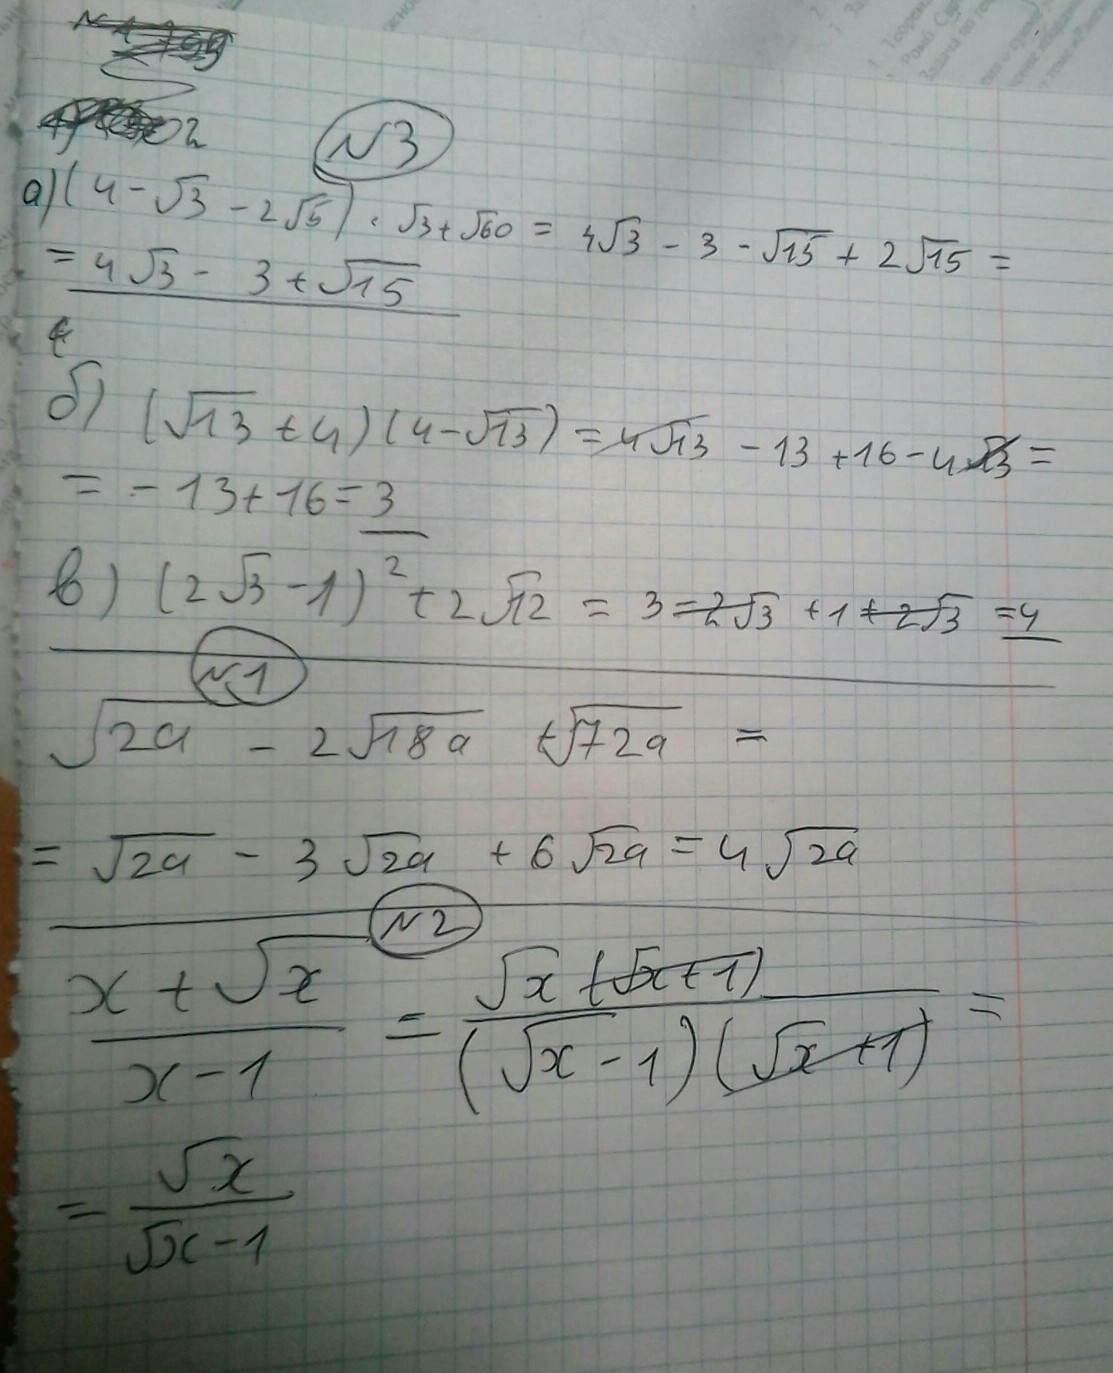 N3
а) (4 - √3 - 2√5) · √3 + √60 = 4√3 - 3 - √15 + 2√15 =
= 4√3 - 3 + √15
б) (√13 + 4)(4 - √13) = 4√13 - 13 + 16 - 4√13 =
= - 13 + 16 = 3
в) (2√3 - 1)² + 2√12 = 3 = 2√3 + 1 + 2√3 = 4
N1
√2a - 2√18a + √72a =
= √2a - 3√2a + 6√2a = 4√2a
N2
(x + √x)/(x - 1) = (√x (√x + 1))/((√x - 1)(√x + 1)) =
= √x/(√x - 1)